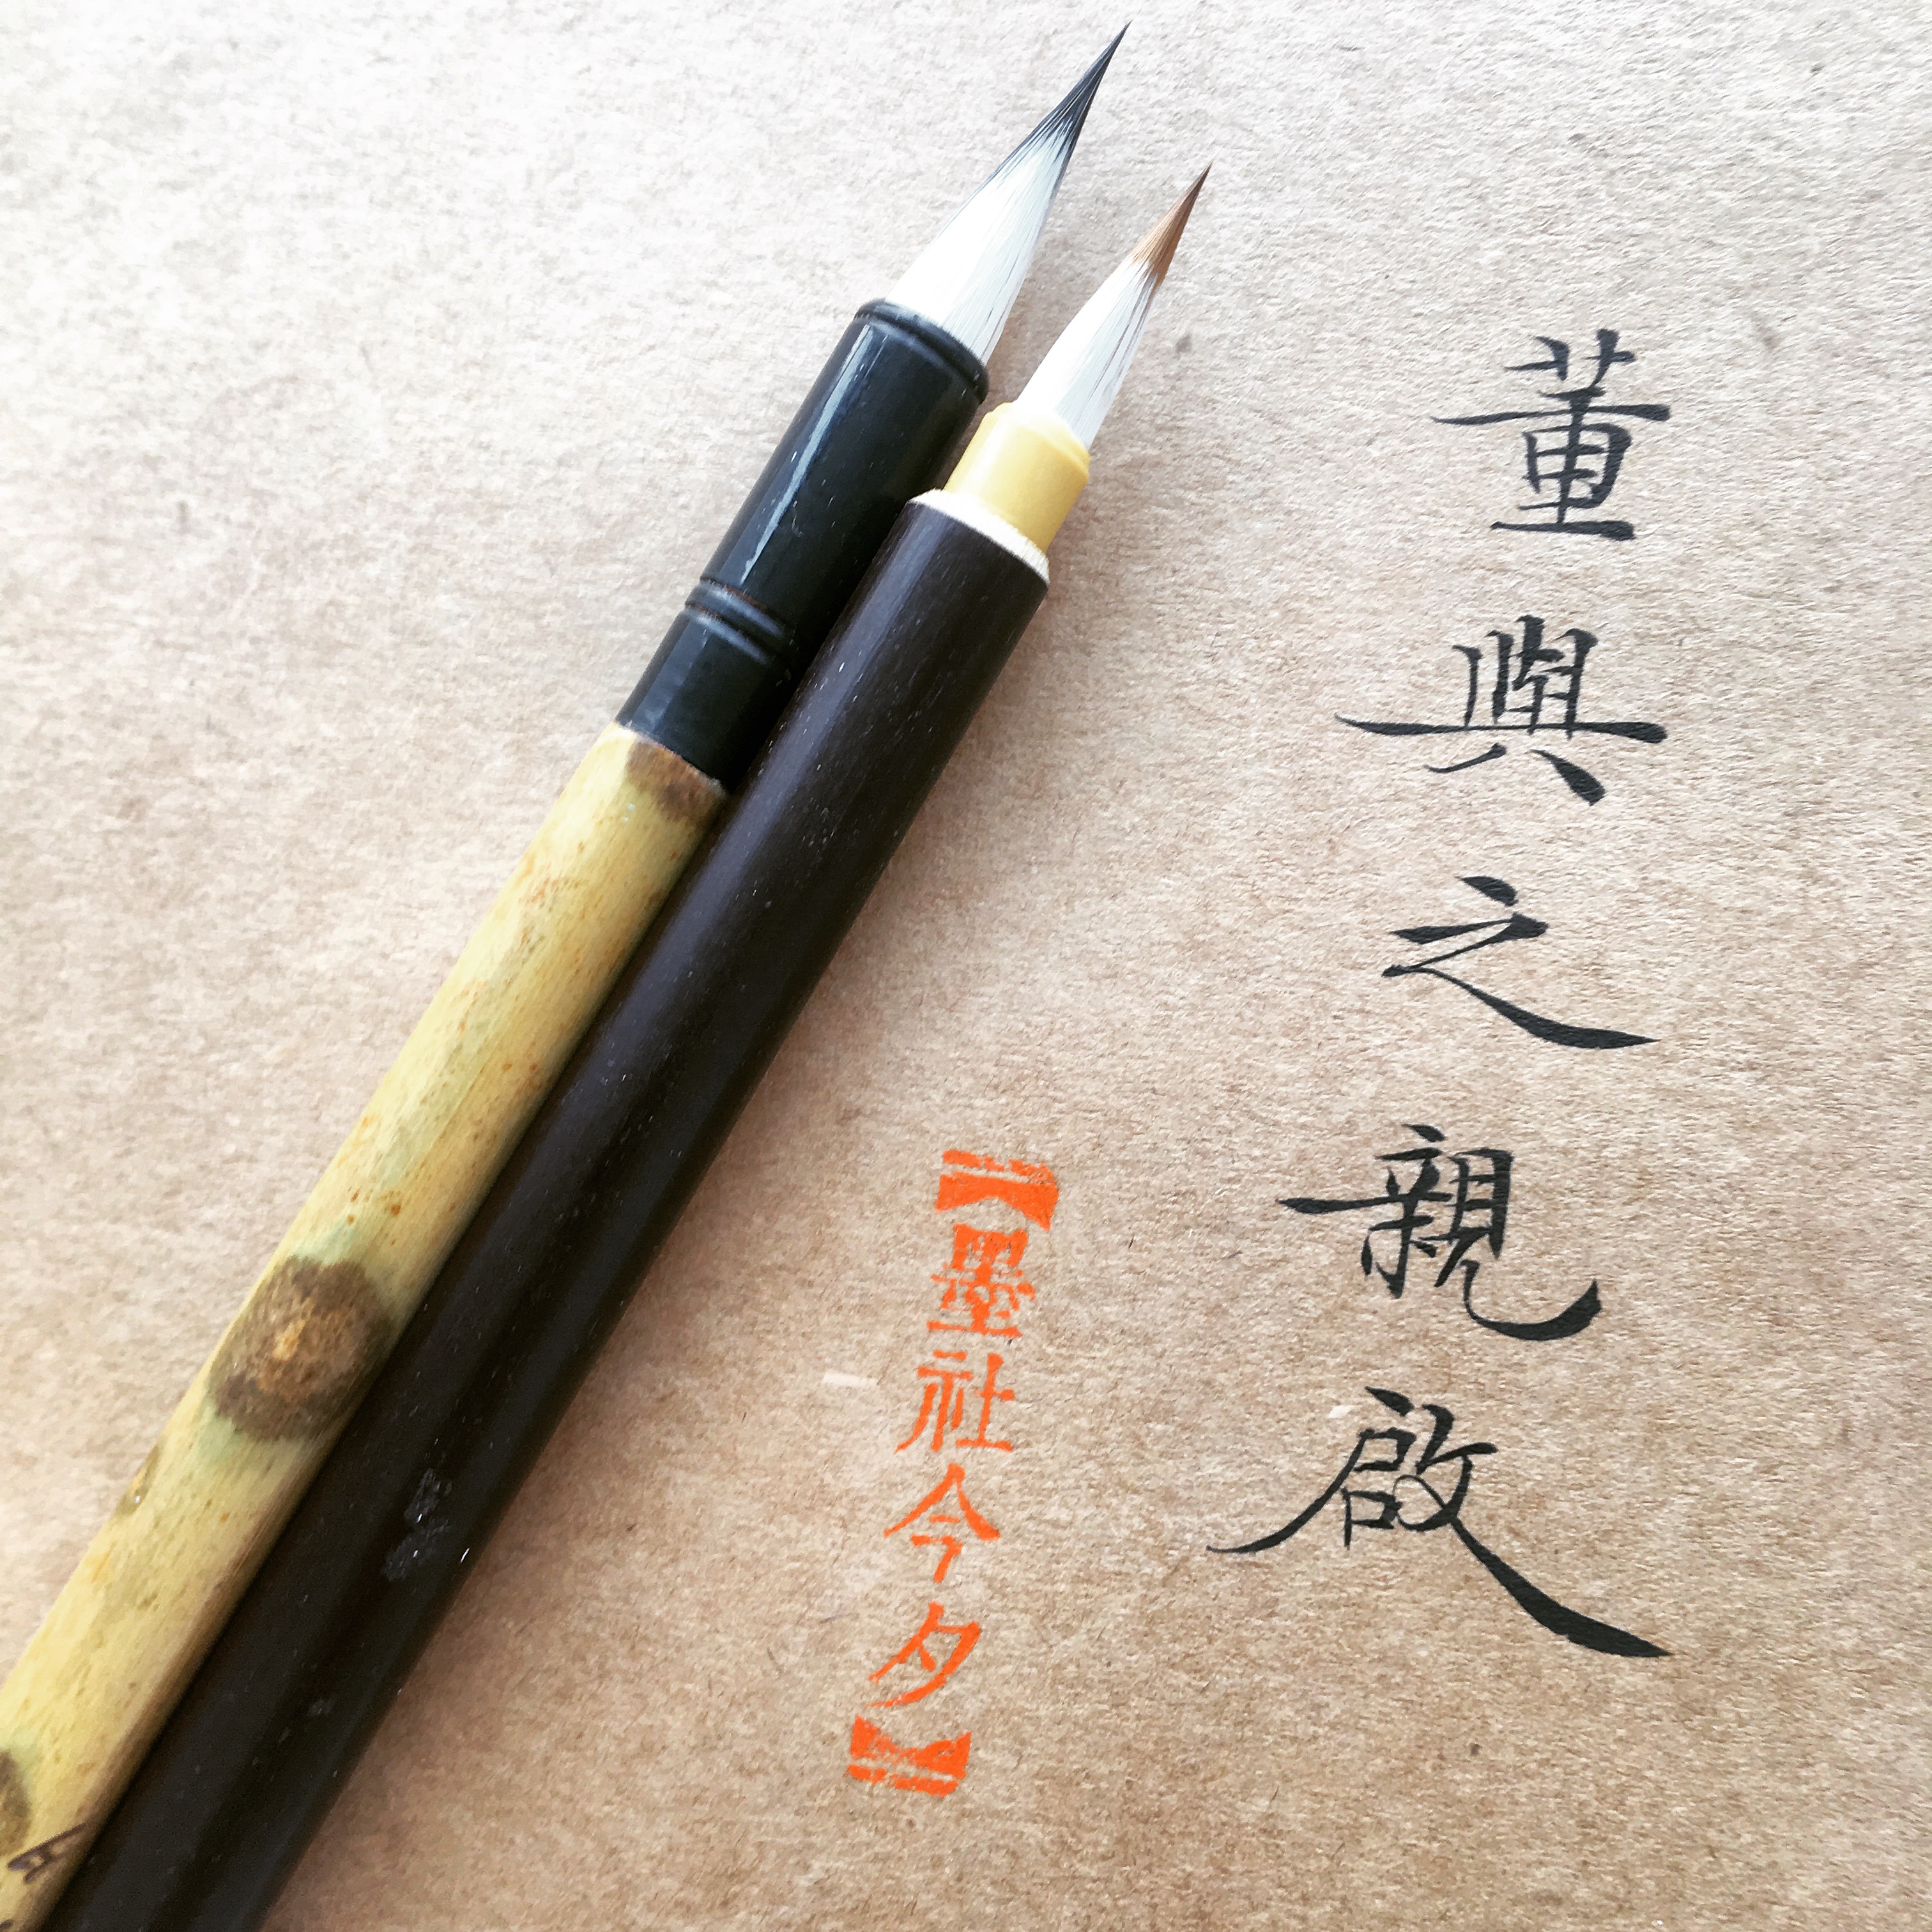 董與之親啟
【墨社今夕】